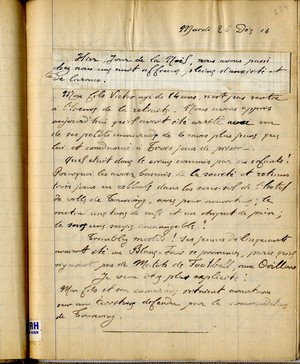 Mardi 26 Dez 16
Hier Jour de la Noël, nous avons passé
chez nous une nuit affreuse pleine d'anxiété et
de larmes.
Mon fils Victor âgé de 14 ans, n'est pas rentré
à l'heure de la retraite. Nous avons appris
aujourd'hui qu'il avait été arrêté avec un
de ses petits camarades de
et condamné à trois jours de prison.
Quel était donc le crime commis par ces enfants!
Pourquoi les avoir bannis de la société et retenus
trois jours en cellule dans les sous-sol de l'hôtel
de ville de Tourcoing, avec pour nourriture; le
matin une tasse de café et un morceau de pain; le
soir une soupe immangeable!
Tremblez mortels! Ces jeunes délinquants
avaient été au Blanc-Seau se promener, parce qu'il
y avait pas de Match de Football, rue
Je veux être plus explicite!
Mon fils et son camarade s'étaient aventurés
sur un territoire défendu par le commandant
de Tourcoing.